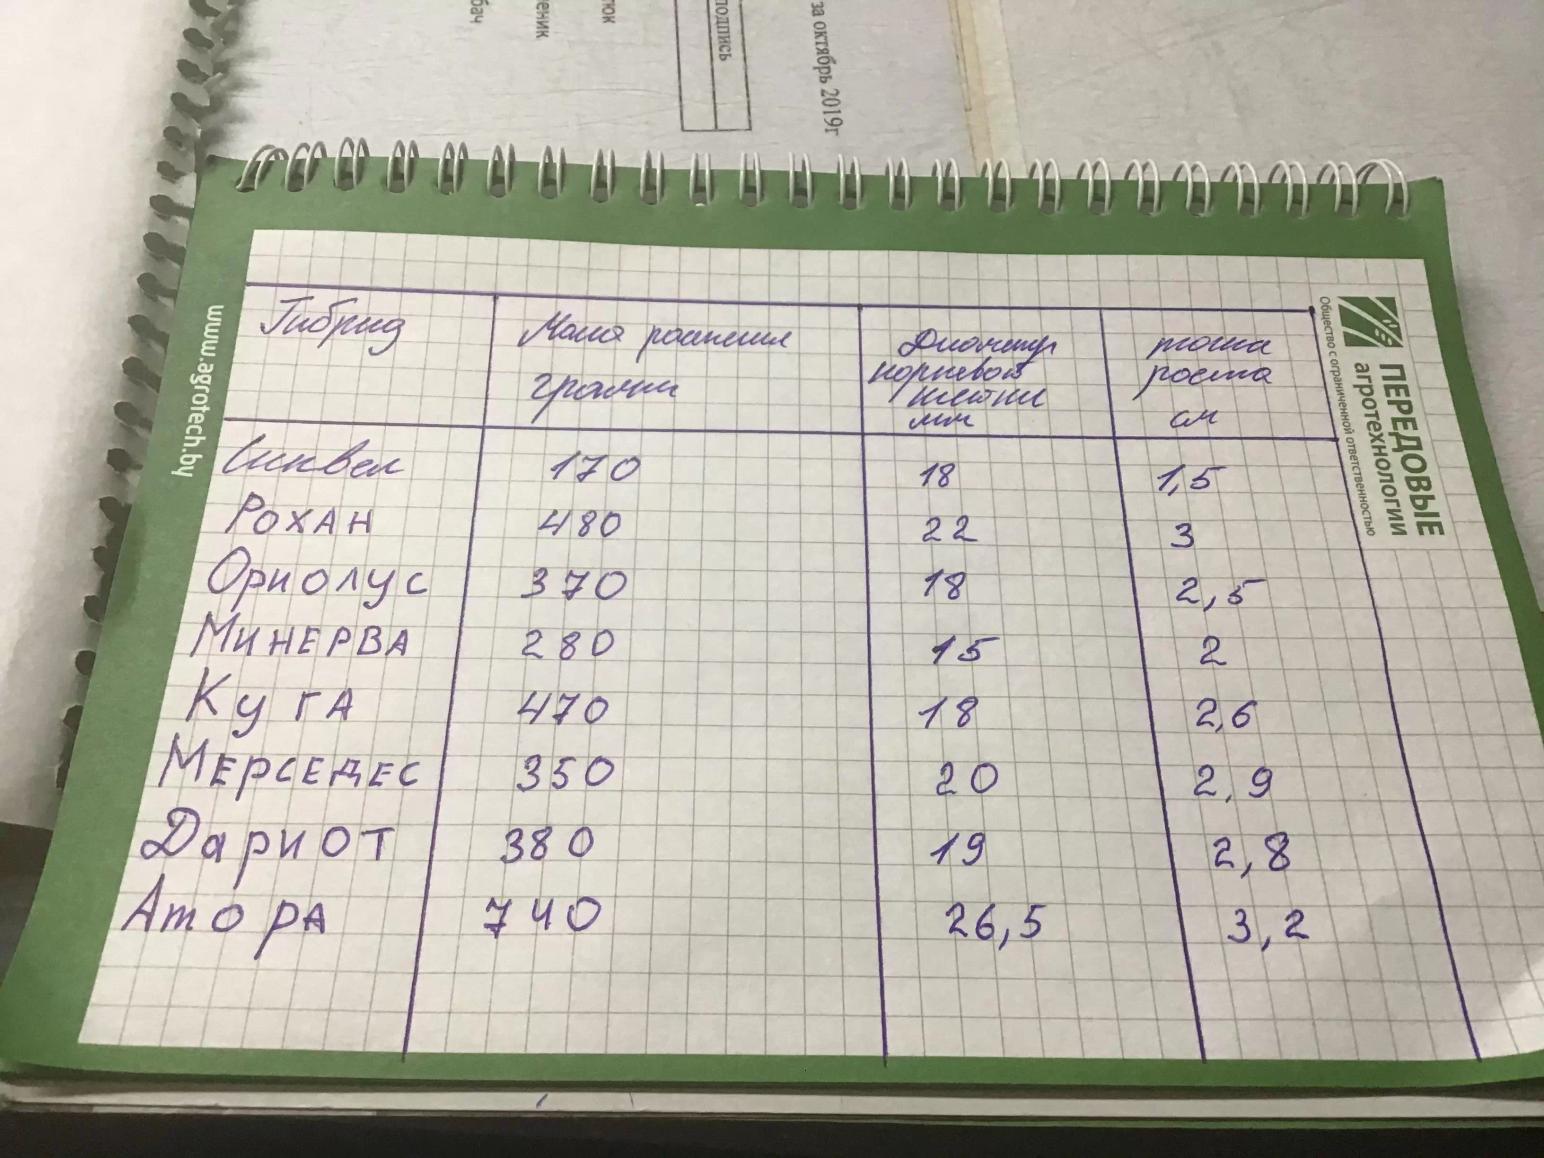 бач
еник
тюк
подпись
за октябрь 2019г
www.agrotech.by
ПЕРЕДОВЫЕ
агротехнологии
Общество с ограниченной ответственностью
Гибрид Масса растения Диаметр точка
грамм корневой роста
шейки
мм см
Сиквел 170 18 1,5
РОХАН 480 22 3
Ориолус 370 18 2,5
МИНЕРВА 280 15 2
КугА 470 18 2,6
МЕРСЕДЕС 350 20 2,9
Дариот 380 19 2,8
АторА 740 26,5 3,2